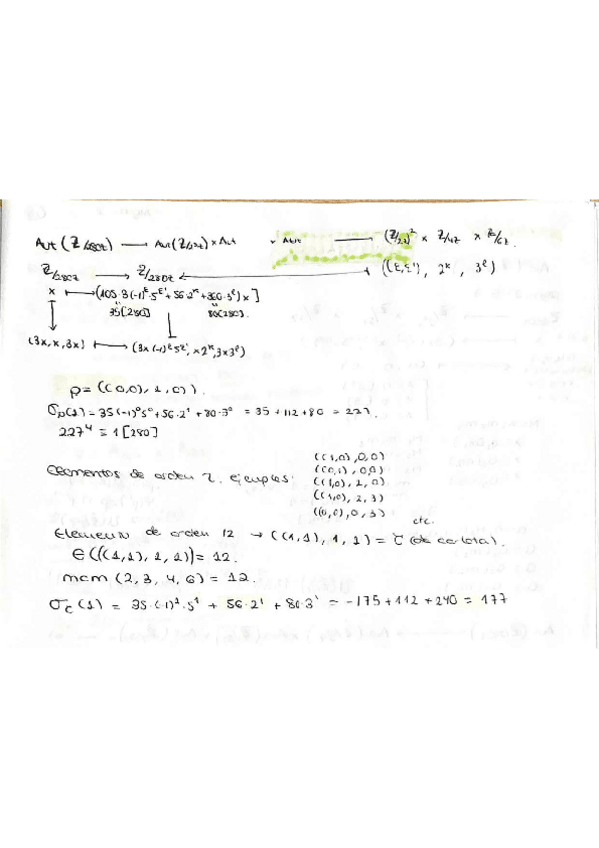 Aut(Z/280Z) → Aut(Z/ ) × Aut × Aut → (Z/2Z)² × Z/4Z × Z/6Z.
Z/280Z → Z/280Z ← ((ε,ε'), 2ᵏ, 3ˡ)
x ↦ (105·3(-1)^ε·5^ε' + 56·2ᵏ + 3ˡ) x]
35[280] 80[280].
(3x, x, 3x) ↦ (3x(-1)^ε 5^ε', x2ᵏ, 3x3ˡ)
ρ = ((0,0), 1, 0).
σρ(1) = 35(-1)⁰5⁰ + 56·2¹ + 80·3⁰ = 35 + 112 + 80 = 227.
227⁴ ≡ 1 [280]
Elementos de orden 2. ejemplos:
((1,0),0,0)
((0,1),0,0)
((1,0),2,0)
((1,0),2,3)
((0,0),0,3)
etc.
Elemento de orden 12 → ((1,1),1,1) = C (de carlota).
Θ(((1,1),1,1)) = 12.
mcm (2,3,4,6) = 12.
σc(1) = 35·(-1)¹·5¹ + 56·2¹ + 80·3¹ = -175 + 112 + 240 = 177